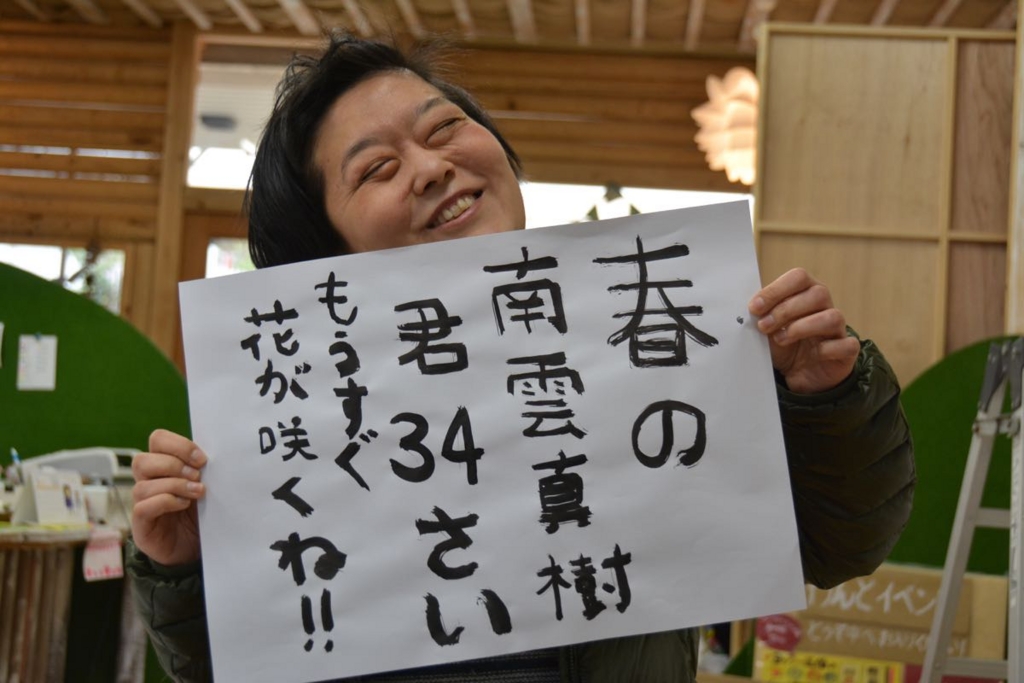 春の
南雲真樹
君34さい
もうすぐ
花が咲くね!!
けんどイベン